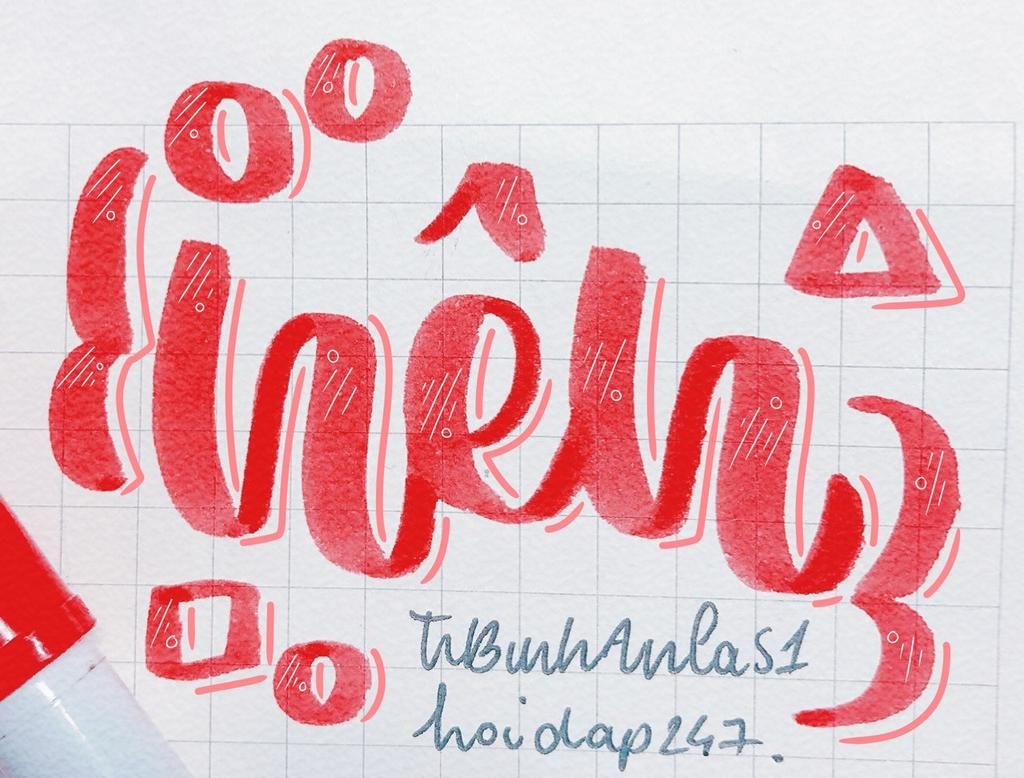 {nên}
TrBinhAnlaS1
hoidap247.